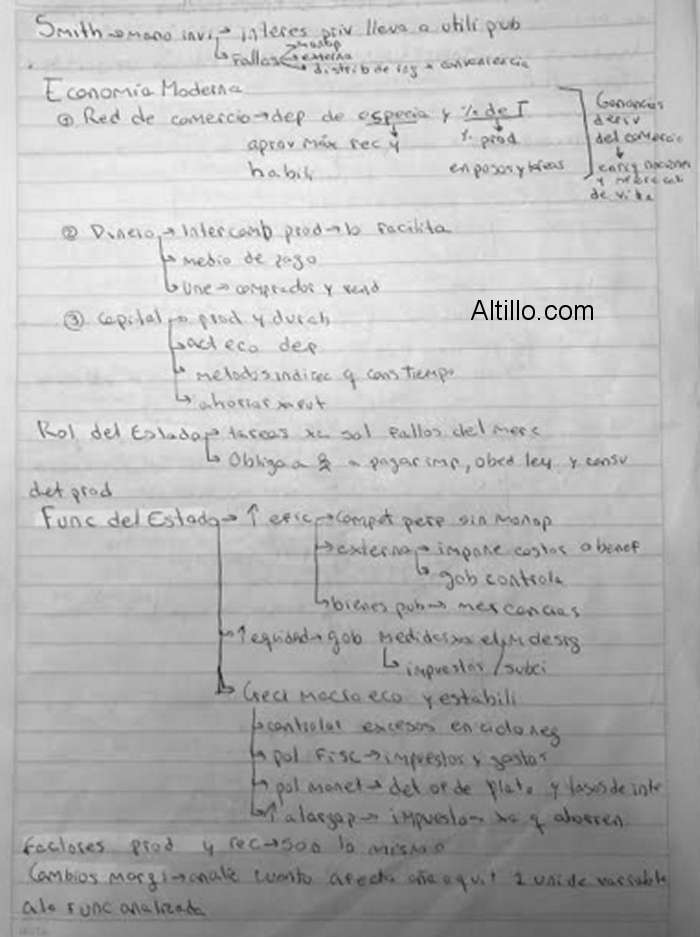 Smith → mano invi → interes priv lleva a utili pub
↳ Fallos → monop
→ externa
→ distrib de ing x conveniencia
Economía Moderna
① Red de comercio → dep de especia y % de T
aprov máx rec y habili
% prod en pasos y tareas
Ganancias deriv del comercio
↓
enriq naciones y mejora cal de vida
② Dinero → Intercamb prod → lo facilita
→ medio de pago
↳ Une → comprador y vend
Altillo.com
③ Capital → prod y durab
→ act eco dep
→ metodos indirec q cons tiempo
↳ ahorrar x fut
Rol del Estado → tareas xa sol fallos del merc
↳ Obliga a a pagar imp, obed ley y consu
det prod
Func del Estado → ↑ efic → compet perf sin monop
→ externa → impone costos o benef
↳ gob controla
↳ bienes pub → mercancias
→ ↑ equidad → gob medidas xa elim desig
↳ impuestos / subci
↳ Creci macro eco y estabili
→ controlar excesos en ciclo neg
→ pol Fisc → impuestos y gastos
→ pol monet → det of de plata y tasas de inte
↳ ↑ a largo p → impuesto → xa q ahorren
Factores prod y rec → son lo mismo
Cambios margi → analiz cuanto afecta aña o quit 1 uni de variable
a la func analizada